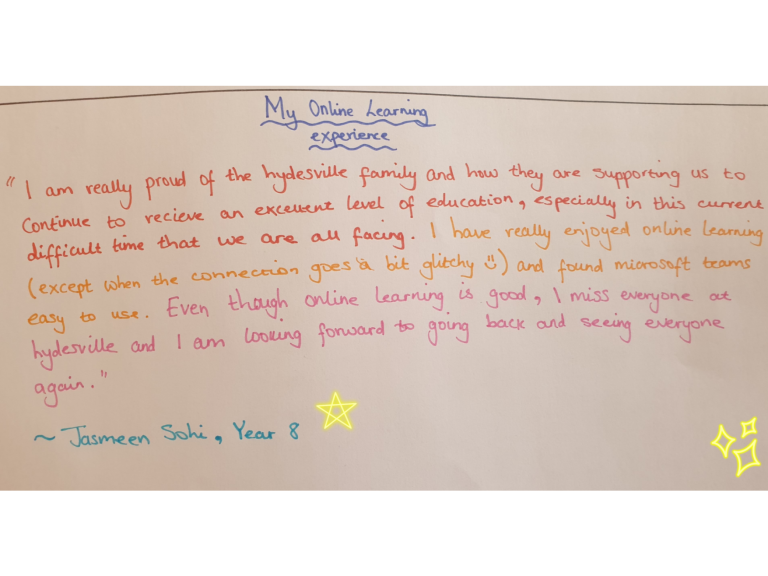 My Online Learning
experience
"I am really proud of the hydesville family and how they are supporting us to
continue to recieve an excellent level of education, especially in this current
difficult time that we are all facing. I have really enjoyed online learning
(except when the connection goes a bit glitchy :)) and found microsoft teams
easy to use. Even though online learning is good, I miss everyone at
hydesville and I am looking forward to going back and seeing everyone
again."
~ Jasmeen Sohi, Year 8